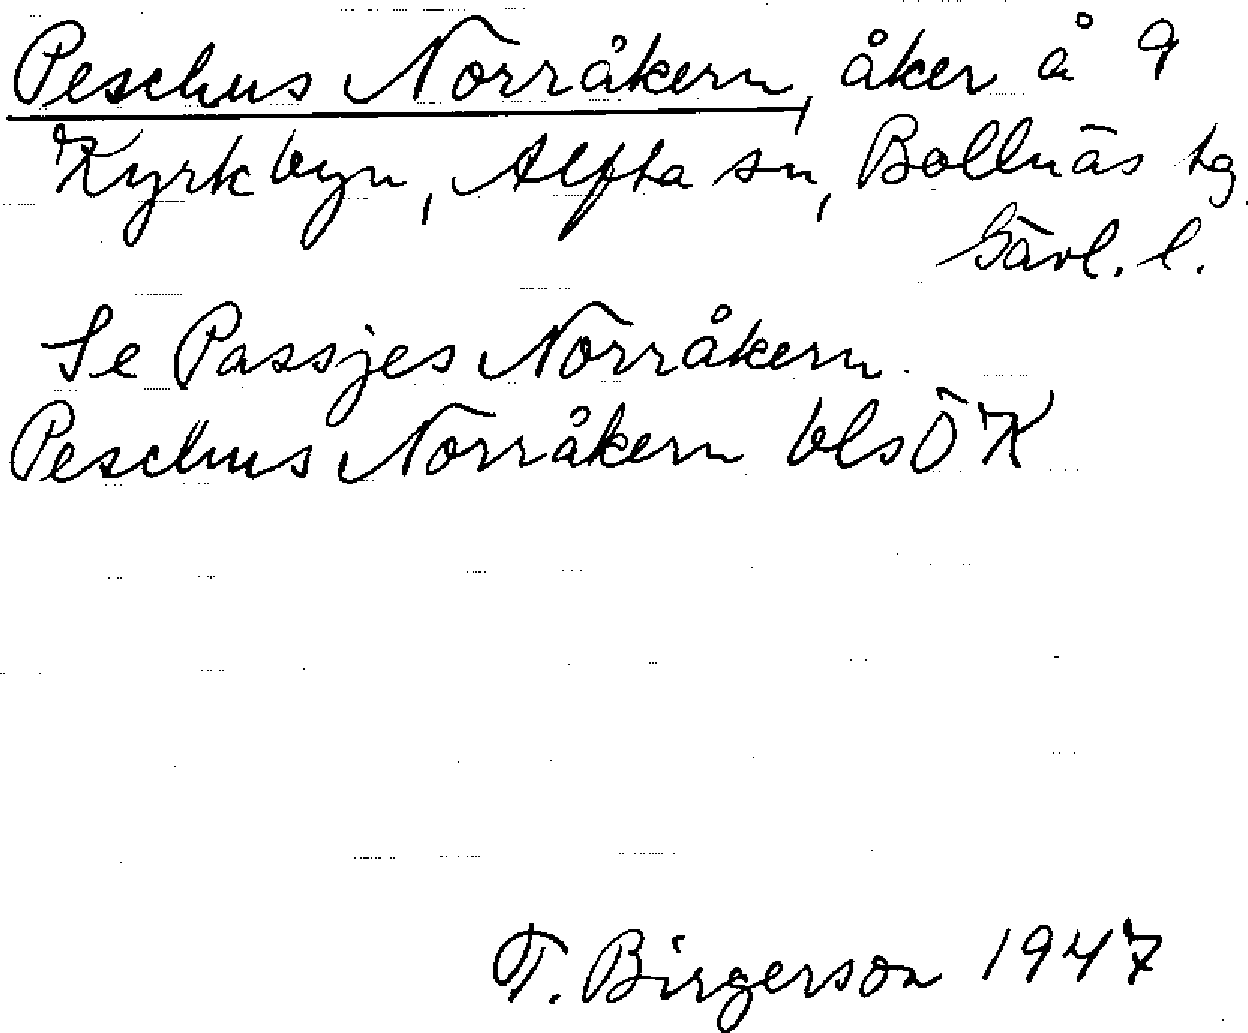 Peschus Norråkern, åker å 9
Kyrkbyn, Alfta sn, Bollnäs tg
Gävl. l.
Se Passjes Norråkern.
Peschus Norråkern bls ÖK
T. Birgerson 1947